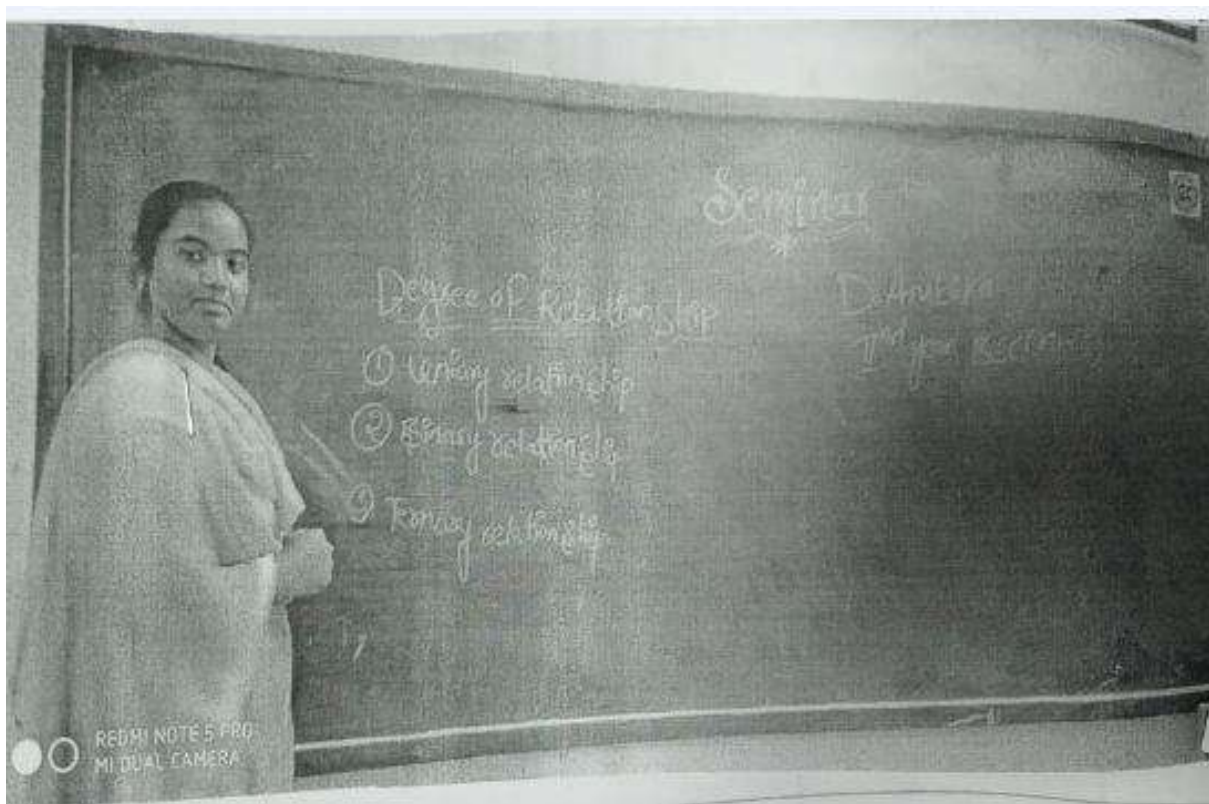 Seminar
Degree of Relationship
① Unary relationship
② Binary relationship
③ Ternary relationship
IInd year
REDMI NOTE 5 PRO
MI DUAL CAMERA